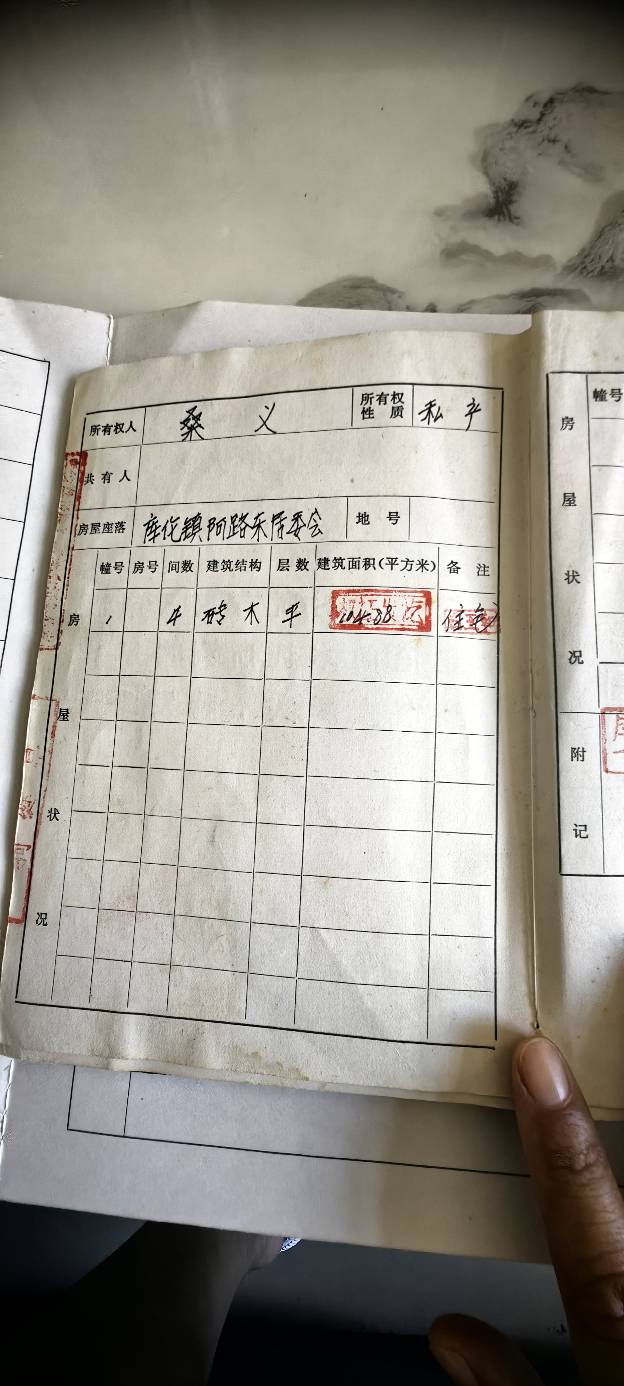 所有权人 桑义 所有权性质 私产
共有人
房屋座落 库伦镇阿路东居委会 地号
幢号 房号 间数 建筑结构 层数 建筑面积(平方米) 备注
1 4 砖木 平 104.88 住宅
房屋状况
幢号
房屋状况
附记